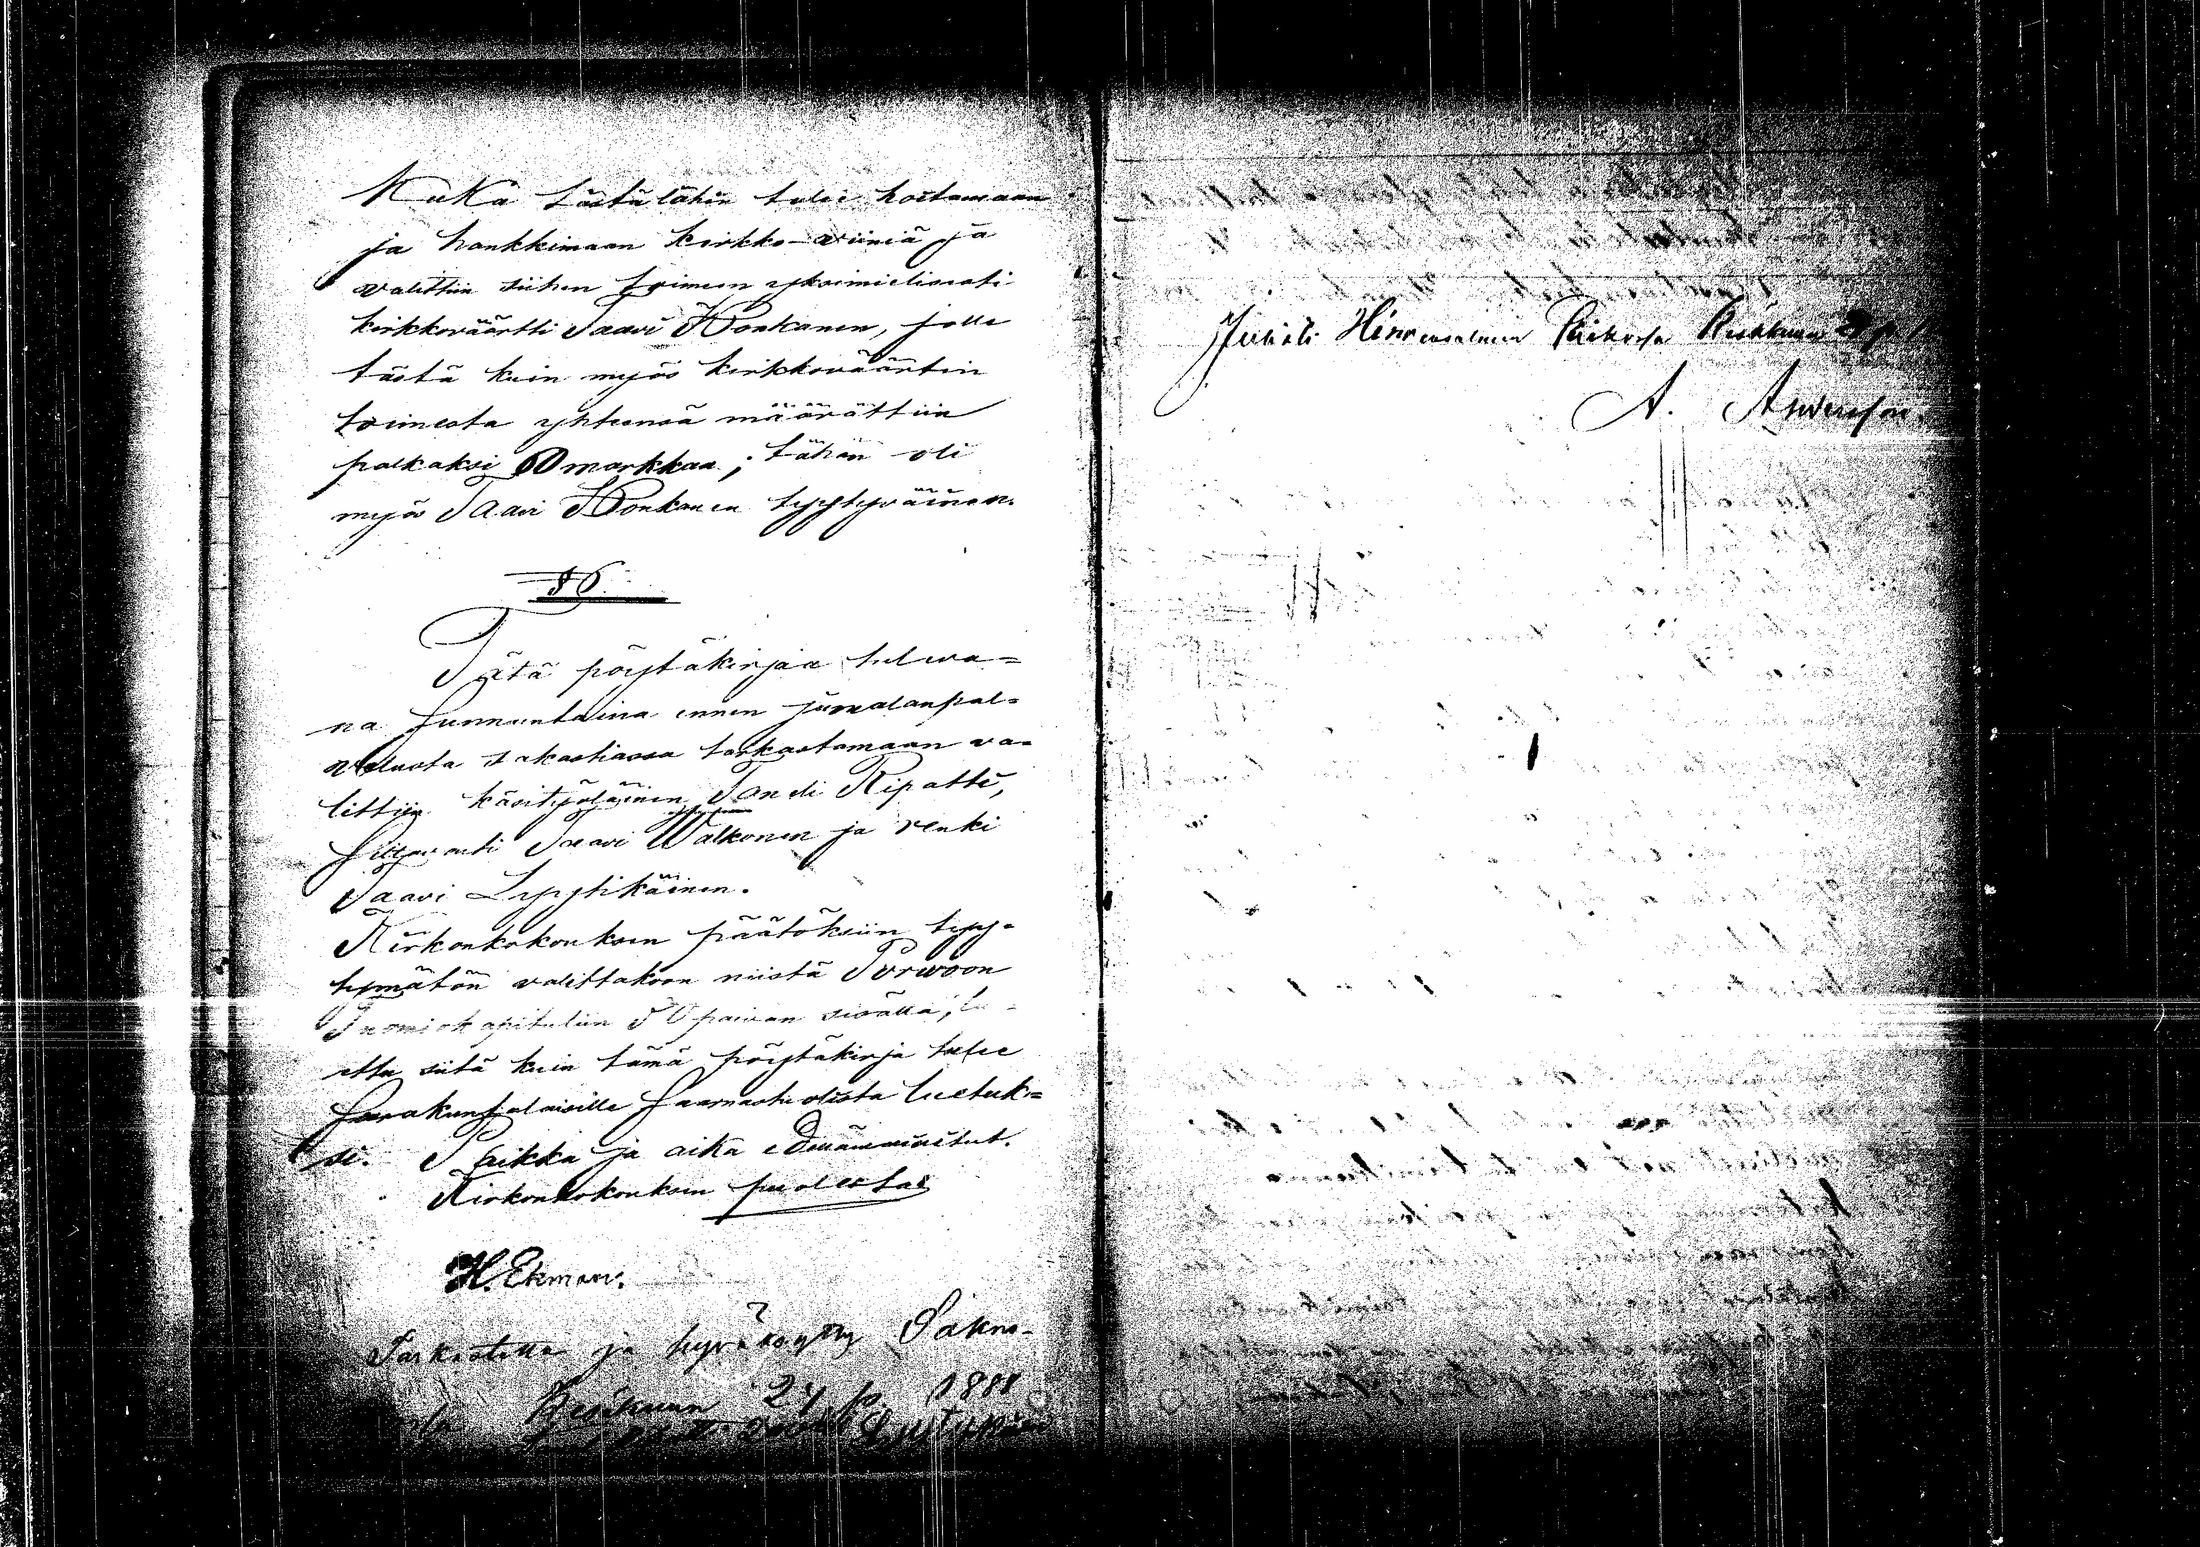 Kuka tästä lähin tulee hoitamaan
ja hankkimaan kirkko-viiniä ja
valittiin siihen toimeen yksimielisesti
kirkkoväärtti Taavi Honkanen, jolle
tästä kuin myös kirkkoväärtin
toimesta yhteensä määrättiin
palkaksi markkaa; tähän oli
myös Taavi Honkanen tyytyväinen.
§ 6.
Tätä pöytäkirjaa tulwa=
na sunnuntaina ennen jumalanpal=
velusta sakastiassa tarkastamaan va=
littiin käsityöläinen Ripatti,
Taavi Walkonen ja renki
Taavi Lyytikäinen.
Kirkonkokouksen päätöksiin tyy=
tymätön valittakoon niistä Porwoon
Tuomiokapituliin 30 päivän sisällä, lu-
ettu siitä kuin tämä pöytäkirja tulee
seurakuntalaisille saarnastuolista luetuk=
si. Paikka ja aika edellämainitut.
Kirkonkokouksen puolesta
H. Ekman.
Tarkastettu ja hyväksytty
Kesäkuun 24 p. 1888
Juhati Rückman
A.